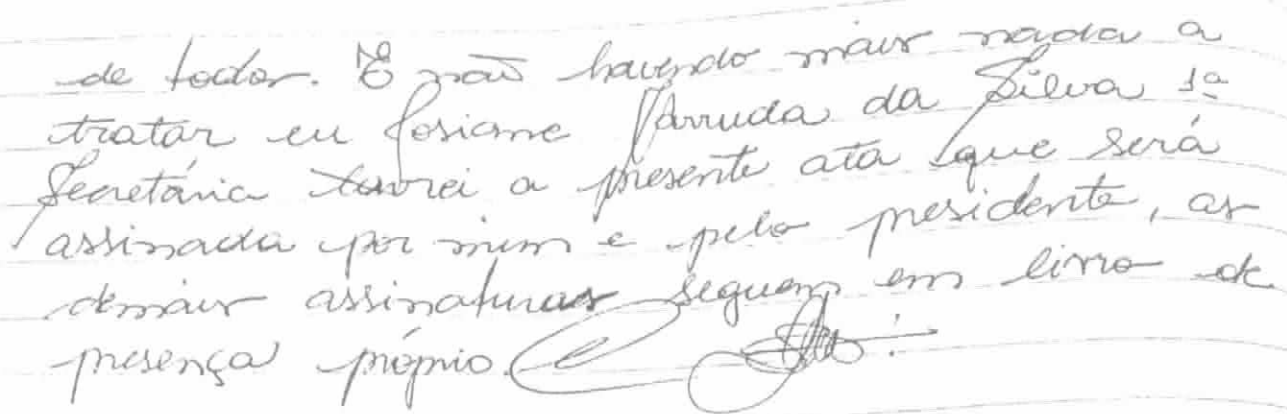 de todos. E não havendo mais nada a
tratar eu Josiane Arruda da Silva 1ª
Secretária lavrei a presente ata que será
assinada por mim e pelo presidente, as
demais assinaturas seguem em livro de
presença próprio.